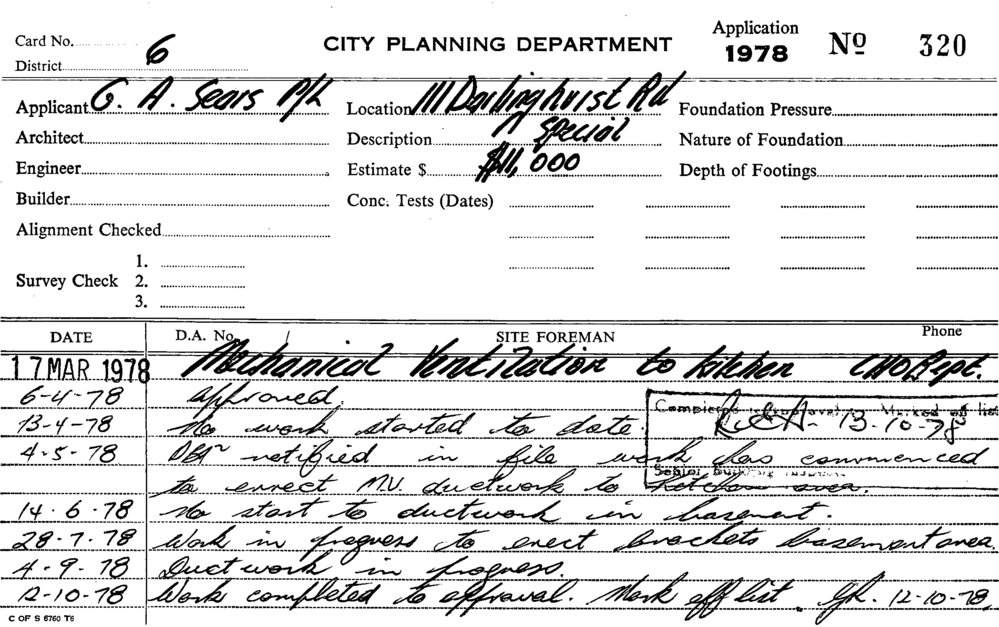 Card No. CITY PLANNING DEPARTMENT Application 1978 Nº 320
District 6
Applicant G. A. Sears P/L Location 111 Darlinghurst Rd Foundation Pressure
Architect Description Special Nature of Foundation
Engineer Estimate $ $11,000 Depth of Footings
Builder Conc. Tests (Dates)
Alignment Checked
Survey Check 1.
2.
3.
DATE D.A. No. SITE FOREMAN Phone
17 MAR 1978 Mechanical Ventilation to kitchen CHO Dept.
6-4-78 Approved.
13-4-78 No work started to date.
Completed to approval. Marked off list
13-10-78
4-5-78 notified in file work has commenced
Senior Building
to errect M.V. ductwork to kitchen area.
14.6.78 No start to ductwork in basement.
28-7-78 Work in progress to erect brackets basement area.
4-9-78 Ductwork in progress.
12-10-78 Work completed to approval. Mark off list. 12-10-78.
C OF S 6760 T6